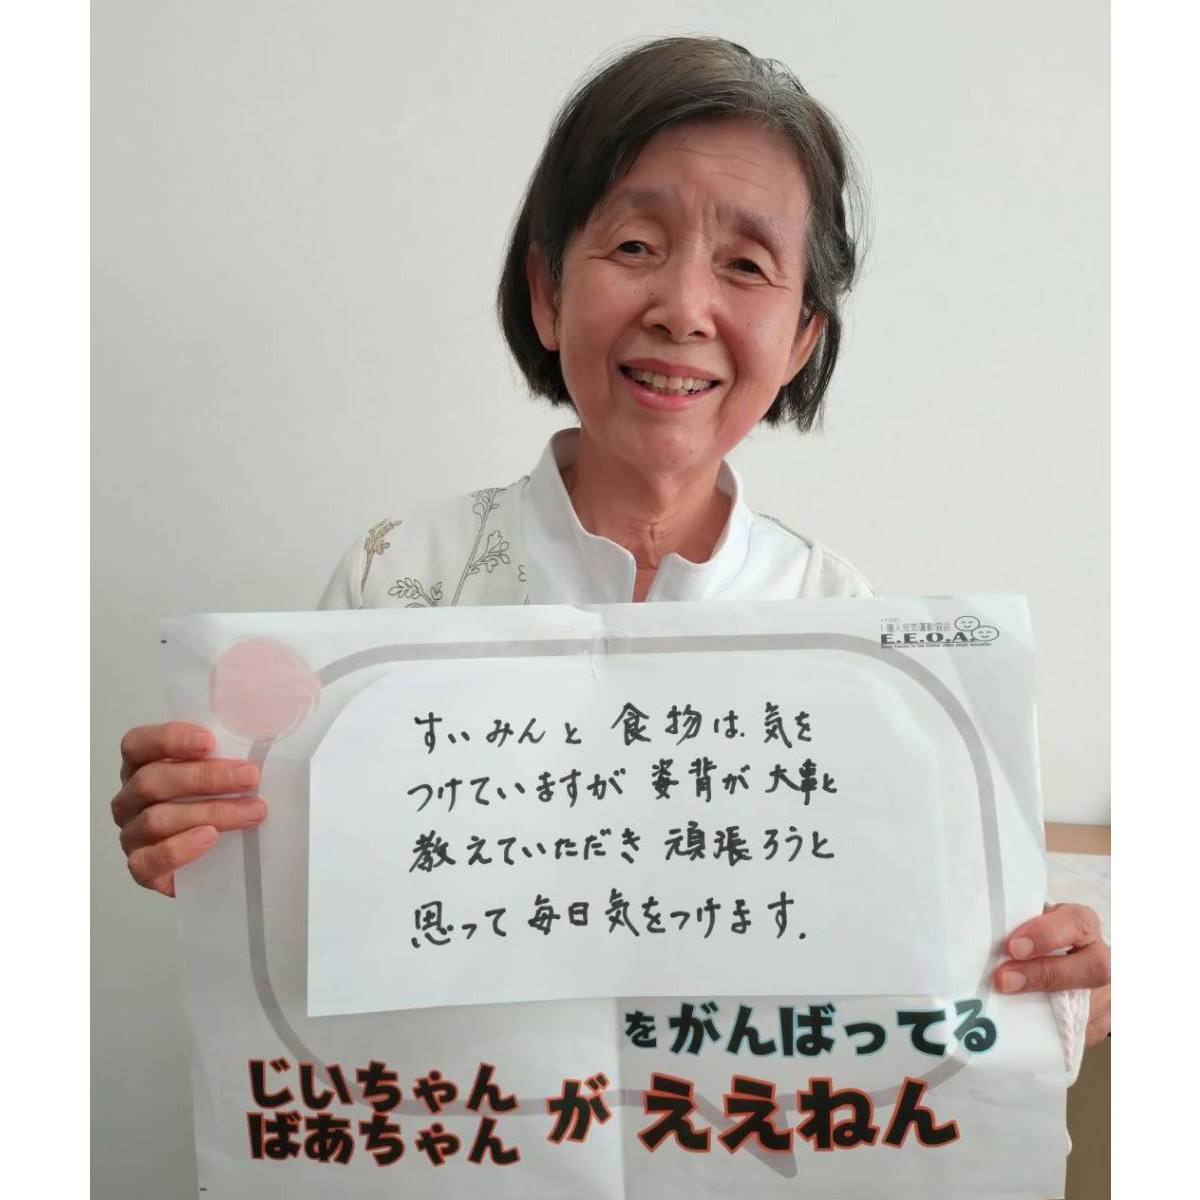 1億人元気運動協会
E.E.O.A.
すいみんと 食物は、気を
つけていますが 姿背が 大事と
教えていただき 頑張ろうと
思って 毎日気をつけます.
をがんばってる
じいちゃん
ばあちゃん
が ええねん